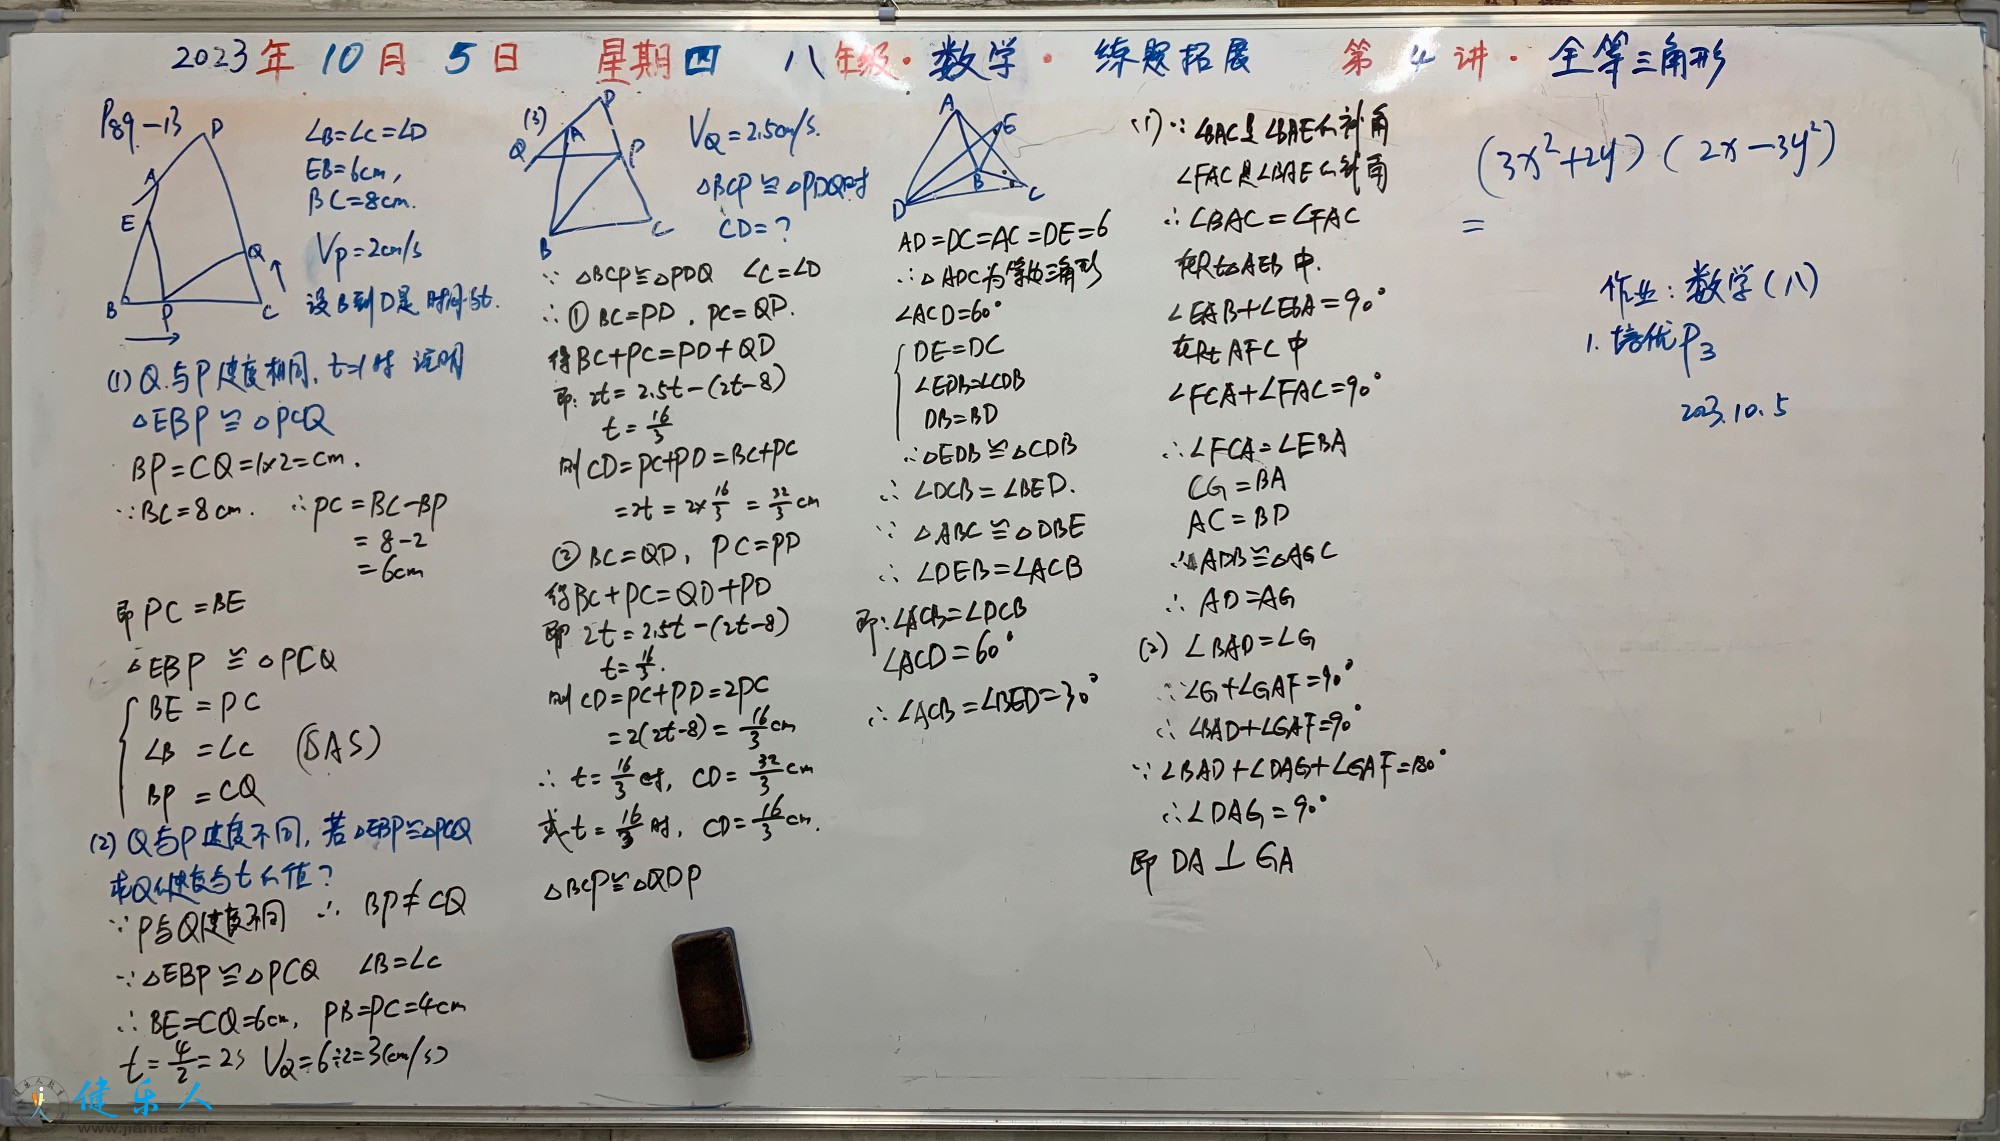 2023年10月5日 星期四 八年级·数学·练题拓展 第4讲·全等三角形
P89-13
D
A
E
B
P
C
Q
∠B=∠C=∠D
EB=6cm,
BC=8cm.
Vp=2cm/s
设B到D是时间是t.
(1) Q与P速度相同, t=1时 说明
△EBP≌△PCQ
BP=CQ=1×2=cm.
∵BC=8cm. ∴PC=BC-BP
=8-2
=6cm
即PC=BE
△EBP≌△PCQ
BE=PC
∠B=∠C (SAS)
BP=CQ
(2) Q与P速度不同, 若△EBP≌△PCQ
求Q的速度与t的值?
∵P与Q速度不同 ∴ BP≠CQ
∵△EBP≌△PCQ ∠B=∠C
∴BE=CQ=6cm, PB=PC=4cm
t=4/2=2s VQ=6÷2=3(cm/s)
(3)
D
A
Q
P
B
C
VQ=2.5cm/s.
△BCP≌△PDQ时
CD=?
∵ △BCP≌△PDQ ∠C=∠D
∴① BC=PD, PC=QD.
得BC+PC=PD+QD
即: 2t=2.5t-(2t-8)
t=16/3
则CD=PC+PD=BC+PC
=2t=2×16/3=32/3cm
② BC=QD, PC=PD
得BC+PC=QD+PD
即 2t=2.5t-(2t-8)
t=16/3.
则CD=PC+PD=2PC
=2(2t-8)=16/3cm
∴ t=16/3时, CD=32/3cm
或t=16/3时, CD=16/3cm.
△BCP≌△QDP
A
E
B
D
C
AD=DC=AC=DE=6
∴△ADC为等边三角形
∠ACD=60°
DE=DC
∠EDB=∠CDB
DB=BD
∴△EDB≌△CDB
∴ ∠DCB=∠BED.
∵ △ABC≌△DBE
∴ ∠DEB=∠ACB
即:∠ACB=∠DCB
∠ACD=60°
∴∠ACB=∠BED=30°
(1)∵∠BAC是∠BAE的补角
∠FAC是∠BAE的补角
∴∠BAC=∠FAC
在Rt△AEB中.
∠EAB+∠EBA=90°
在Rt AFC中
∠FCA+∠FAC=90°
∴∠FCA=∠EBA
CG=BA
AC=BD
∴△ADB≌△AGC
∴ AD=AG
(2) ∠BAD=∠G
∵∠G+∠GAF=90°
∴∠BAD+∠GAF=90°
∵∠BAD+∠DAG+∠GAF=180°
∴∠DAG=90°
即 DA⊥GA
(3x²+2y)(2x-3y²)
=
作业: 数学(八)
1. 培优P3
2023.10.5
健乐人
www.jianle.ren